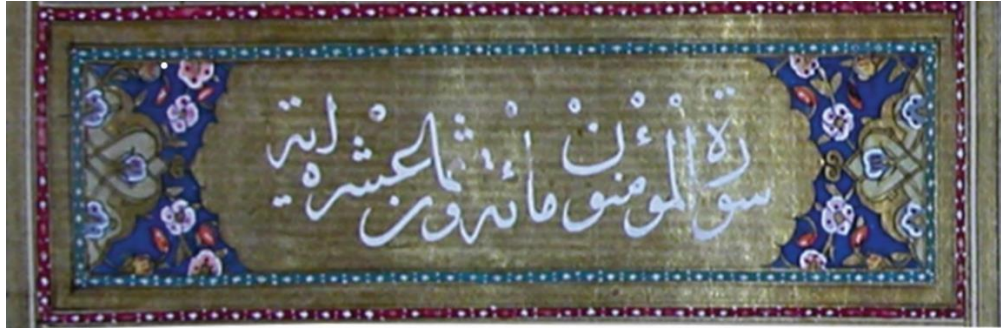 سورة المؤمنون مائة وثمانی عشرة اية